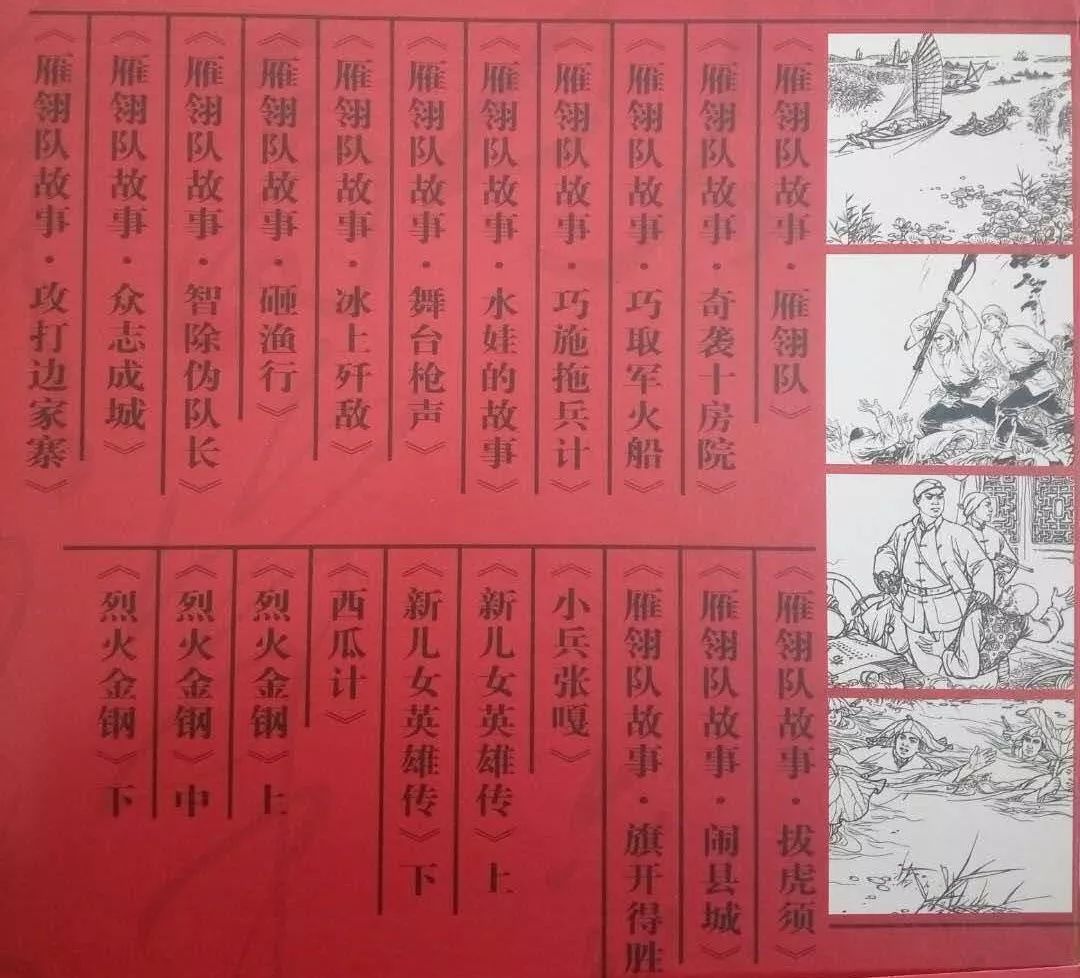 《雁翎队故事·雁翎队》
《雁翎队故事·奇袭十房院》
《雁翎队故事·巧取军火船》
《雁翎队故事·巧施拖兵计》
《雁翎队故事·水娃的故事》
《雁翎队故事·舞台枪声》
《雁翎队故事·冰上歼敌》
《雁翎队故事·砸渔行》
《雁翎队故事·智除伪队长》
《雁翎队故事·众志成城》
《雁翎队故事·攻打边家寨》
《雁翎队故事·拔虎须》
《雁翎队故事·闹县城》
《雁翎队故事·旗开得胜
《小兵张嘎》
《新儿女英雄传》上
《新儿女英雄传》下
《西瓜计》
《烈火金钢》上
《烈火金钢》中
《烈火金钢》下